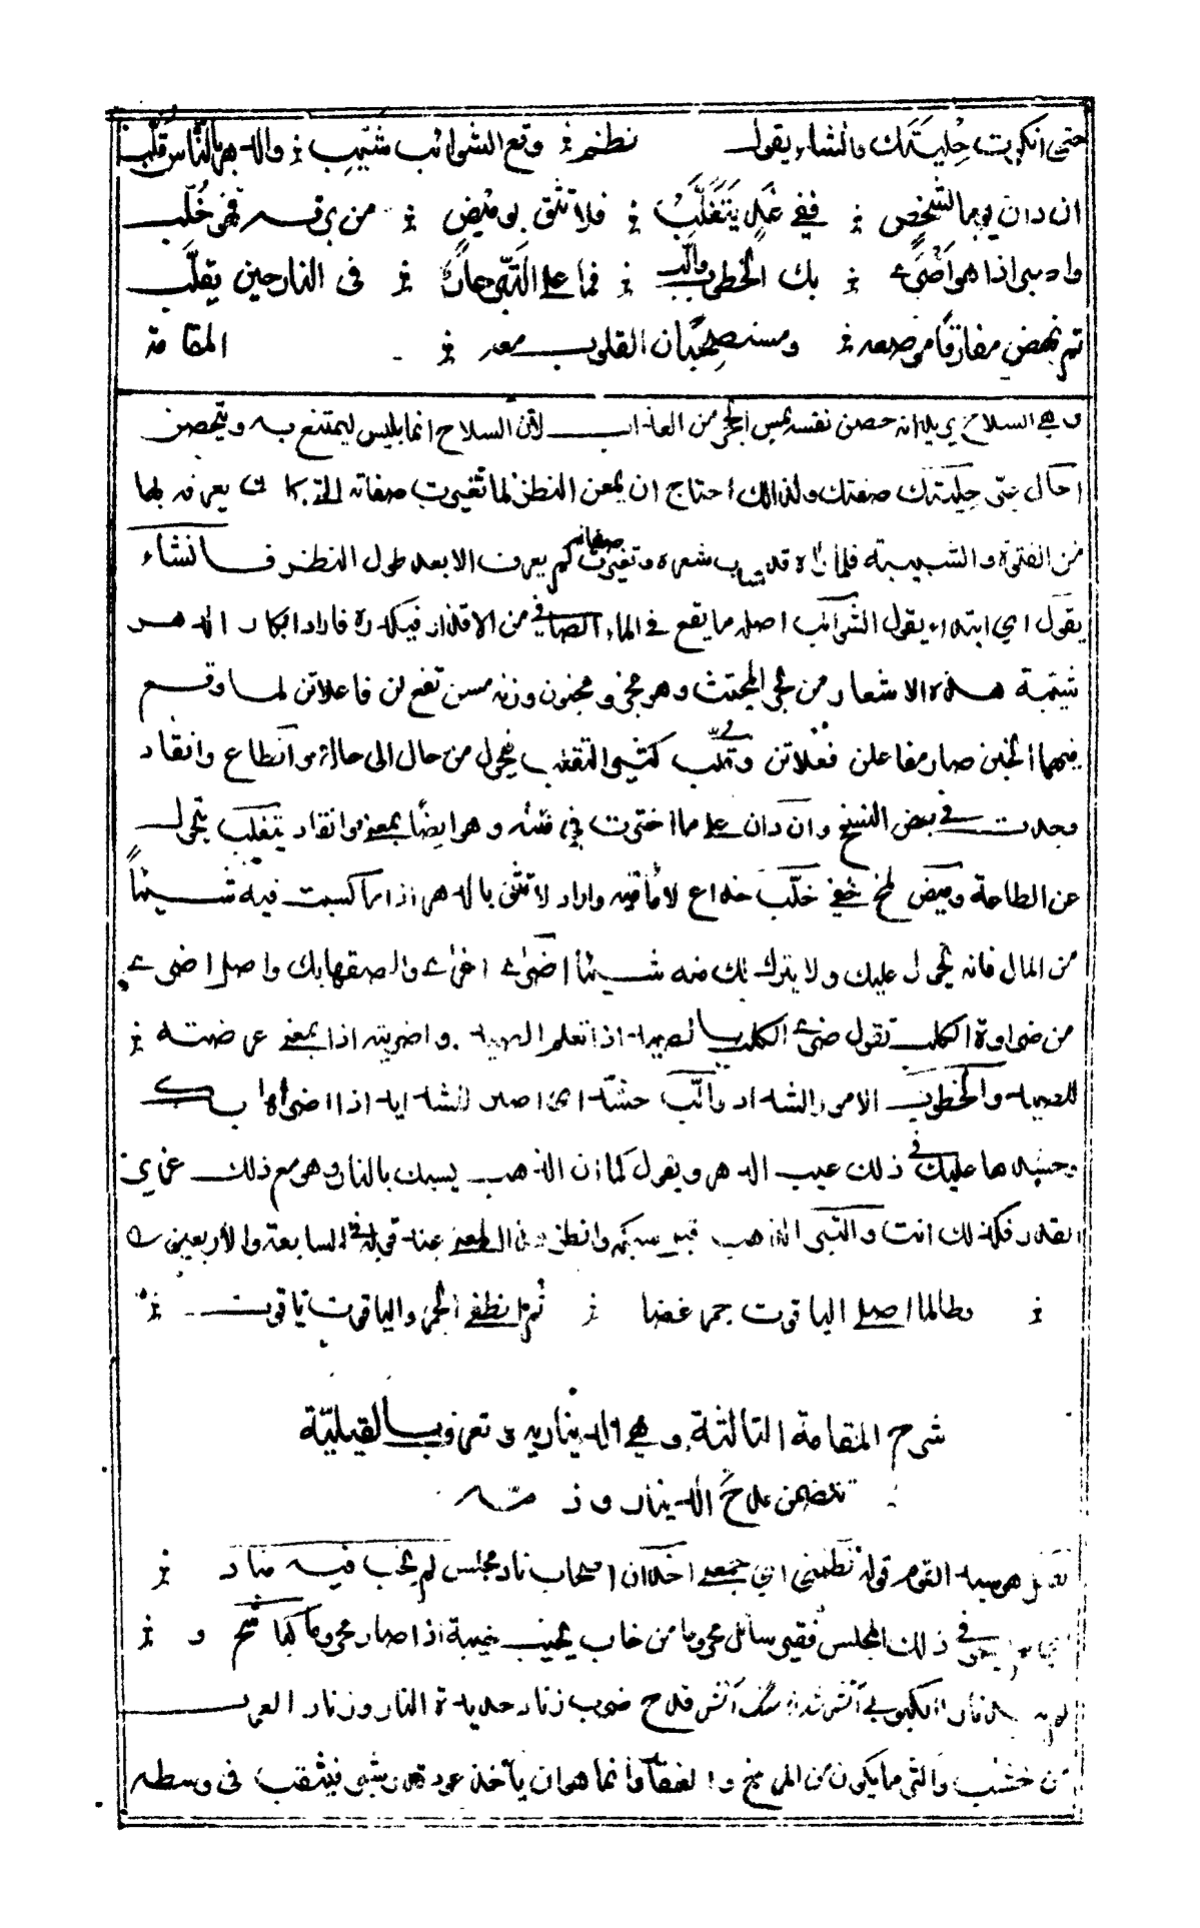 حتى انكرت حليتك فانشاء يقول نظم وقع الشوائب شيّب والدهر بالناس قلّب
ان دان يوما لشخص ففي غد يتغلّب فلا تثق بوميض من برقه فهو خلّب
واصبر اذا هو اضرى بك الخطوب والّب فما على التبر عار في النار حين يقلّب
ثم نهض مفارقا موضعه ومستصحبا القلوب معه المقامة
من السلاح يريد انه حصن نفسه من العذاب لان السلاح انما يلبس ليمتنع به ويتحصن
احال حتى حليتك صفتك ولذلك احتاج ان يمعن النظر لما تغيرت صفاته التي كانت يعرفه بها
من الفتوة والشبيبة فلما راه قد شاب شعره وتغيرت صفاته لم يعرف الا بعد طول النظر فانشاء
يقول اي ابتداء يقول الشوائب اصله ما يقع في الماء الصافي من الاقذار فيكدره فاراد انكار الدهر
شيّبه هذه الاشعار من المجتث وهو مجزو مخبون وزنه مستفع لن فاعلاتن لما وقع
فيهما الخبن صار مفاعلن فعلاتن وقلّب كثير التقلب يحول من حال الى حال دان اطاع وانقاد
وجدت في بعض النسخ وان دان على ما اخترت في وهو ايضا بمعنى وانقاد يتغلب يتحول
عن الطاعة وميض لمح خفي خلّب خداع لا ماء فيه واراد لا تثق بالدهر اذا ما كسبت فيه شيئا
من المال فانه يحول عليك ولا يترك لك منه شيئا اضرى اغرى والصقها بك واصل اضرى
من ضراوة الكلب تقول ضرى الكلب بالصيد اذا تعلم الصيد واضريته اذا بمعنى عرضته
للصيد والخطوب الامور الشداد والّب حشد اي اصبر للشدايد اذا اضراها بك
وحشدها عليك في ذلك عيب الدهر ويقول كما ان الذهب يسبك بالنار وهو مع ذلك عزيز
القدر فكذلك انت والتبر الذهب قبل سبكه وانظر هذا المعنى عند قوله في السابعة والاربعين
وطالما اصلي الياقوت جمر غضا ثم انطفى الجمر والياقوت ياقوت
شرح المقامة الثالثة وهي الدينارية وتعرف بالقيليّة
تتضمن مدح الدينار وذمته
القوم قوله نظمني اي جمعني اخدان اصحاب ناد مجلس لم يخب فيه مناد
في ذلك المجلس فقير سائل محروما من خاب يخيب خيبة اذا صار محروما كبا
قدح ضرب زناد حديدة النار وزناد العرب
من خشب واكثر ما يكون من المرخ والعفار وانما هو ان يأخذ عود قدر شبر فيثقب في وسطه